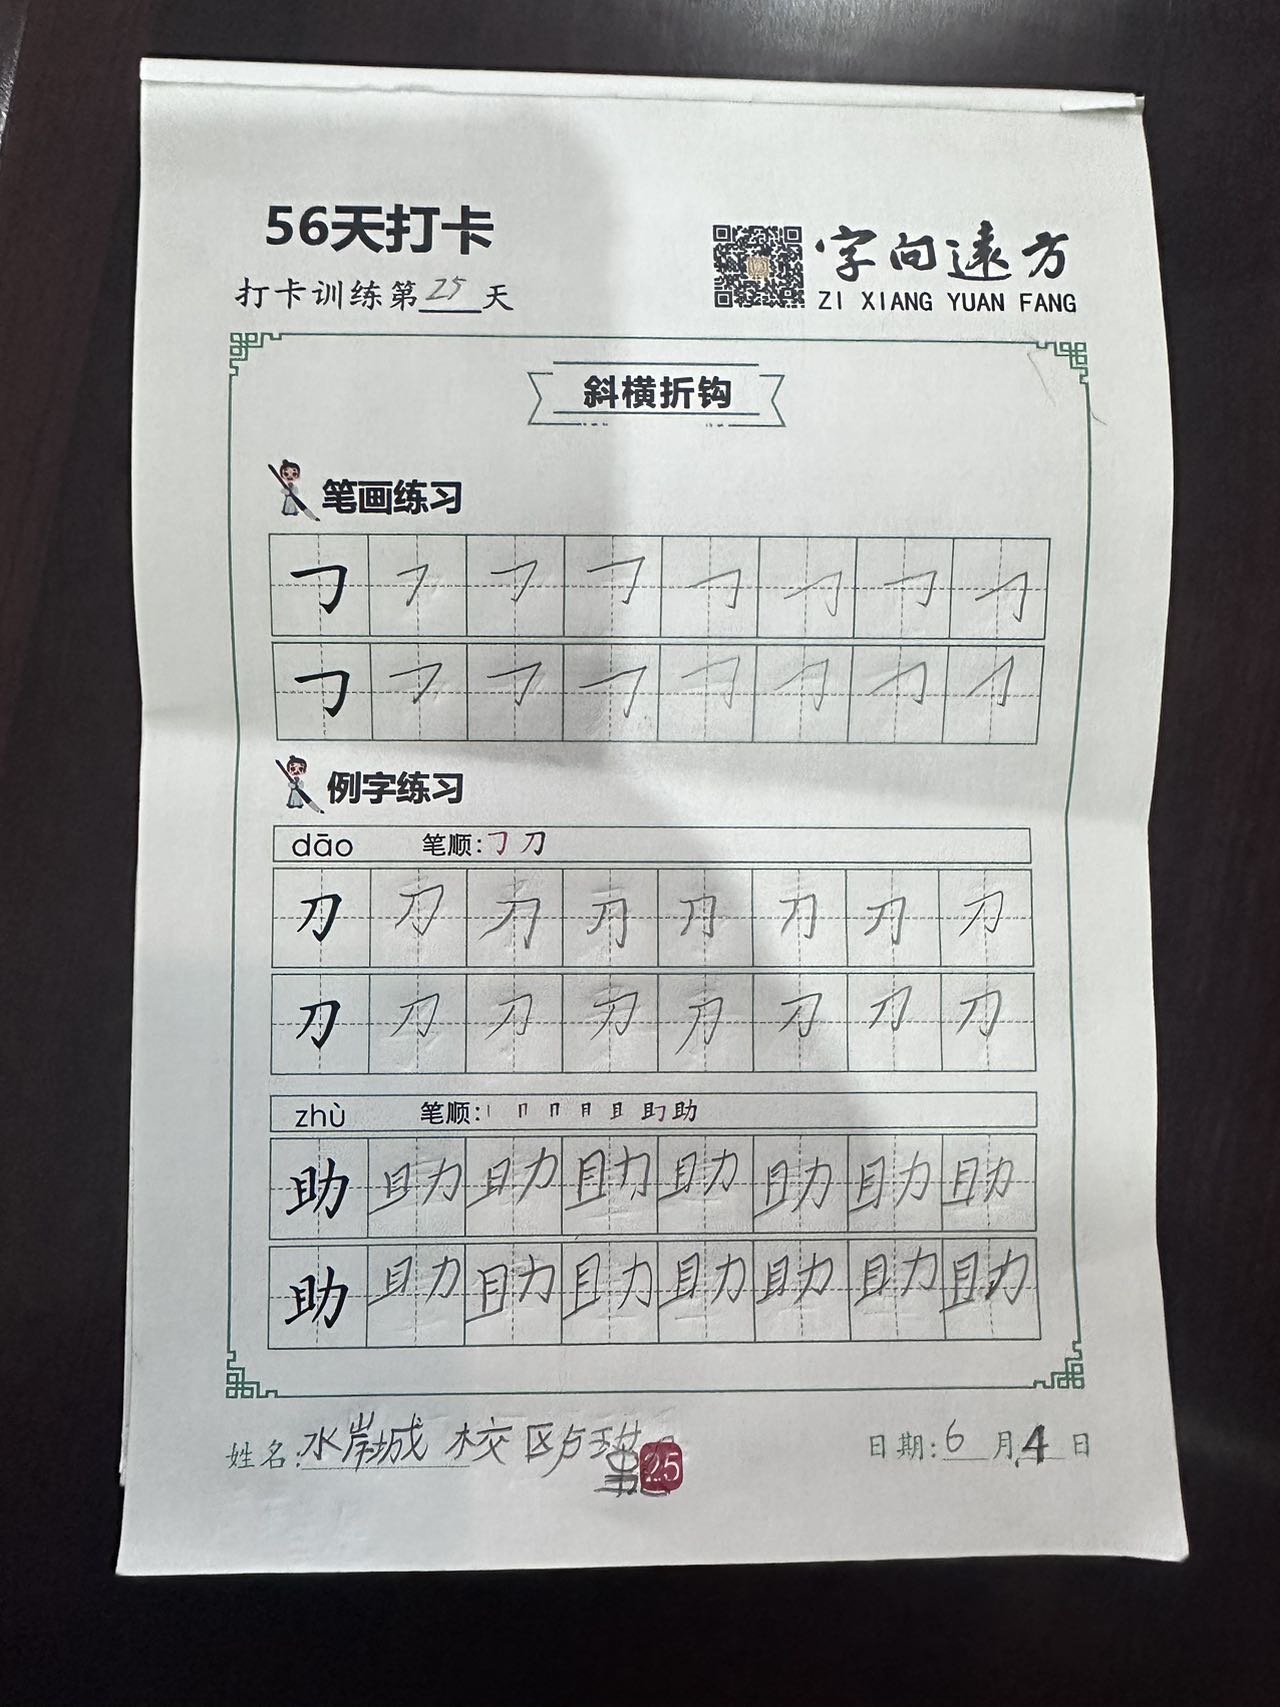 56天打卡
打卡训练第25天
字向遠方
ZI XIANG YUAN FANG
斜横折钩
笔画练习
例字练习
dāo 笔顺:㇆ 刀
刀 刀 刀 刀 刀 刀 刀 刀
刀 刀 刀 刀 刀 刀 刀 刀
zhù 笔顺:丨 冂 冂 月 且 助 助
助 助 助 助 助 助 助 助
助 助 助 助 助 助 助 助
姓名:水岸城 校区
25
日期:6月4日